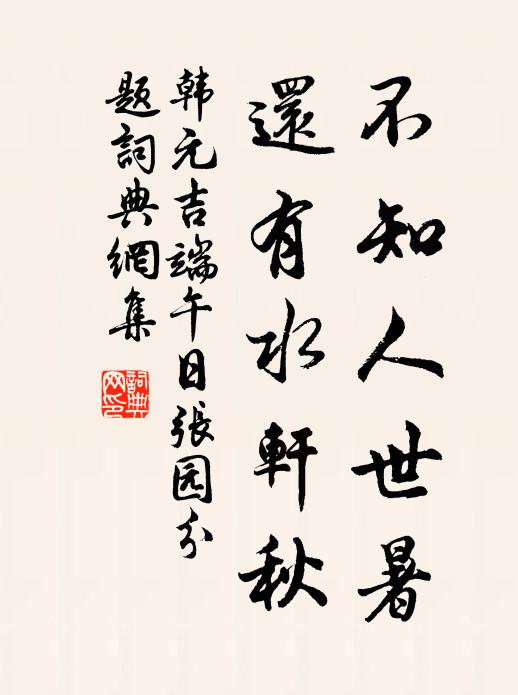 不知人世暑
還有水軒秋
韩元吉端午日張园分
题詞典網集
詞典
网印